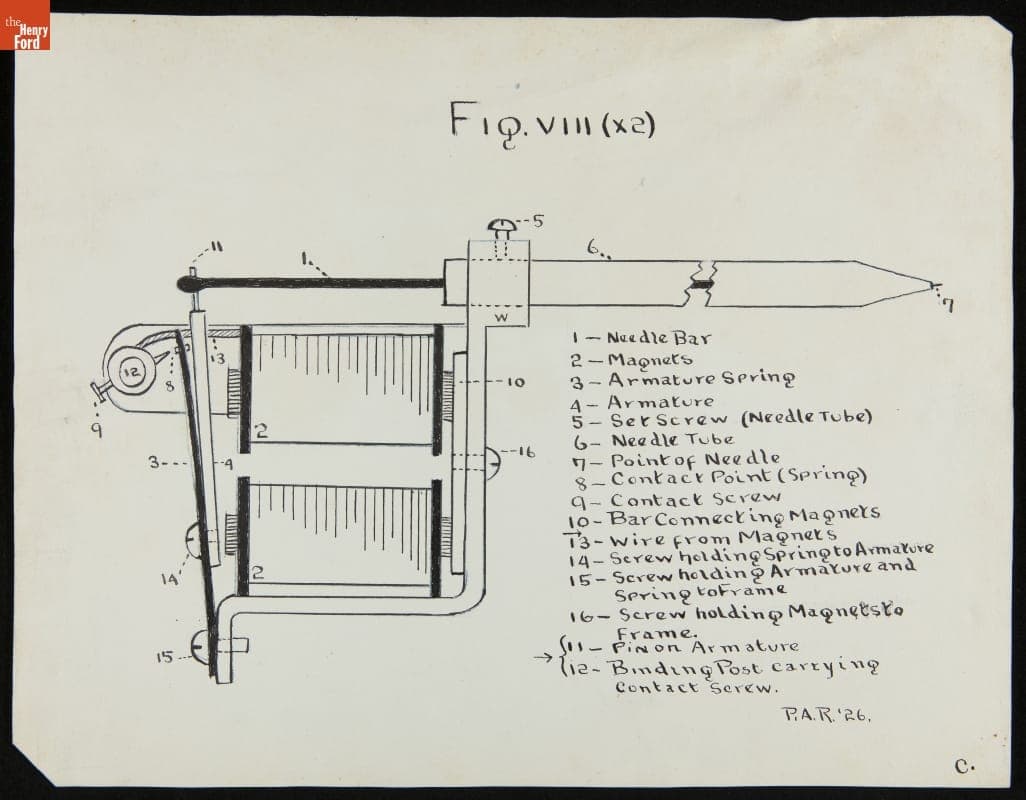 the
Henry
Ford
Fig. VIII (x2)
11
1.
5
6.
7
W
12
13
8
9
10
2
3
4
16
14
2
15
1 — Needle Bar
2 — Magnets
3 — Armature Spring
4 — Armature
5 — Set Screw (Needle Tube)
6 — Needle Tube
7 — Point of Needle
8 — Contact Point (Spring)
9 — Contact Screw
10 - Bar Connecting Magnets
13 - Wire from Magnets
14 - Screw holding Spring to Armature
15 - Screw holding Armature and
Spring to Frame
16 - Screw holding Magnets to
Frame.
→ { 11 - Pin on Armature
12 - Binding Post carrying
Contact Screw.
P.A.R. '26.
C.